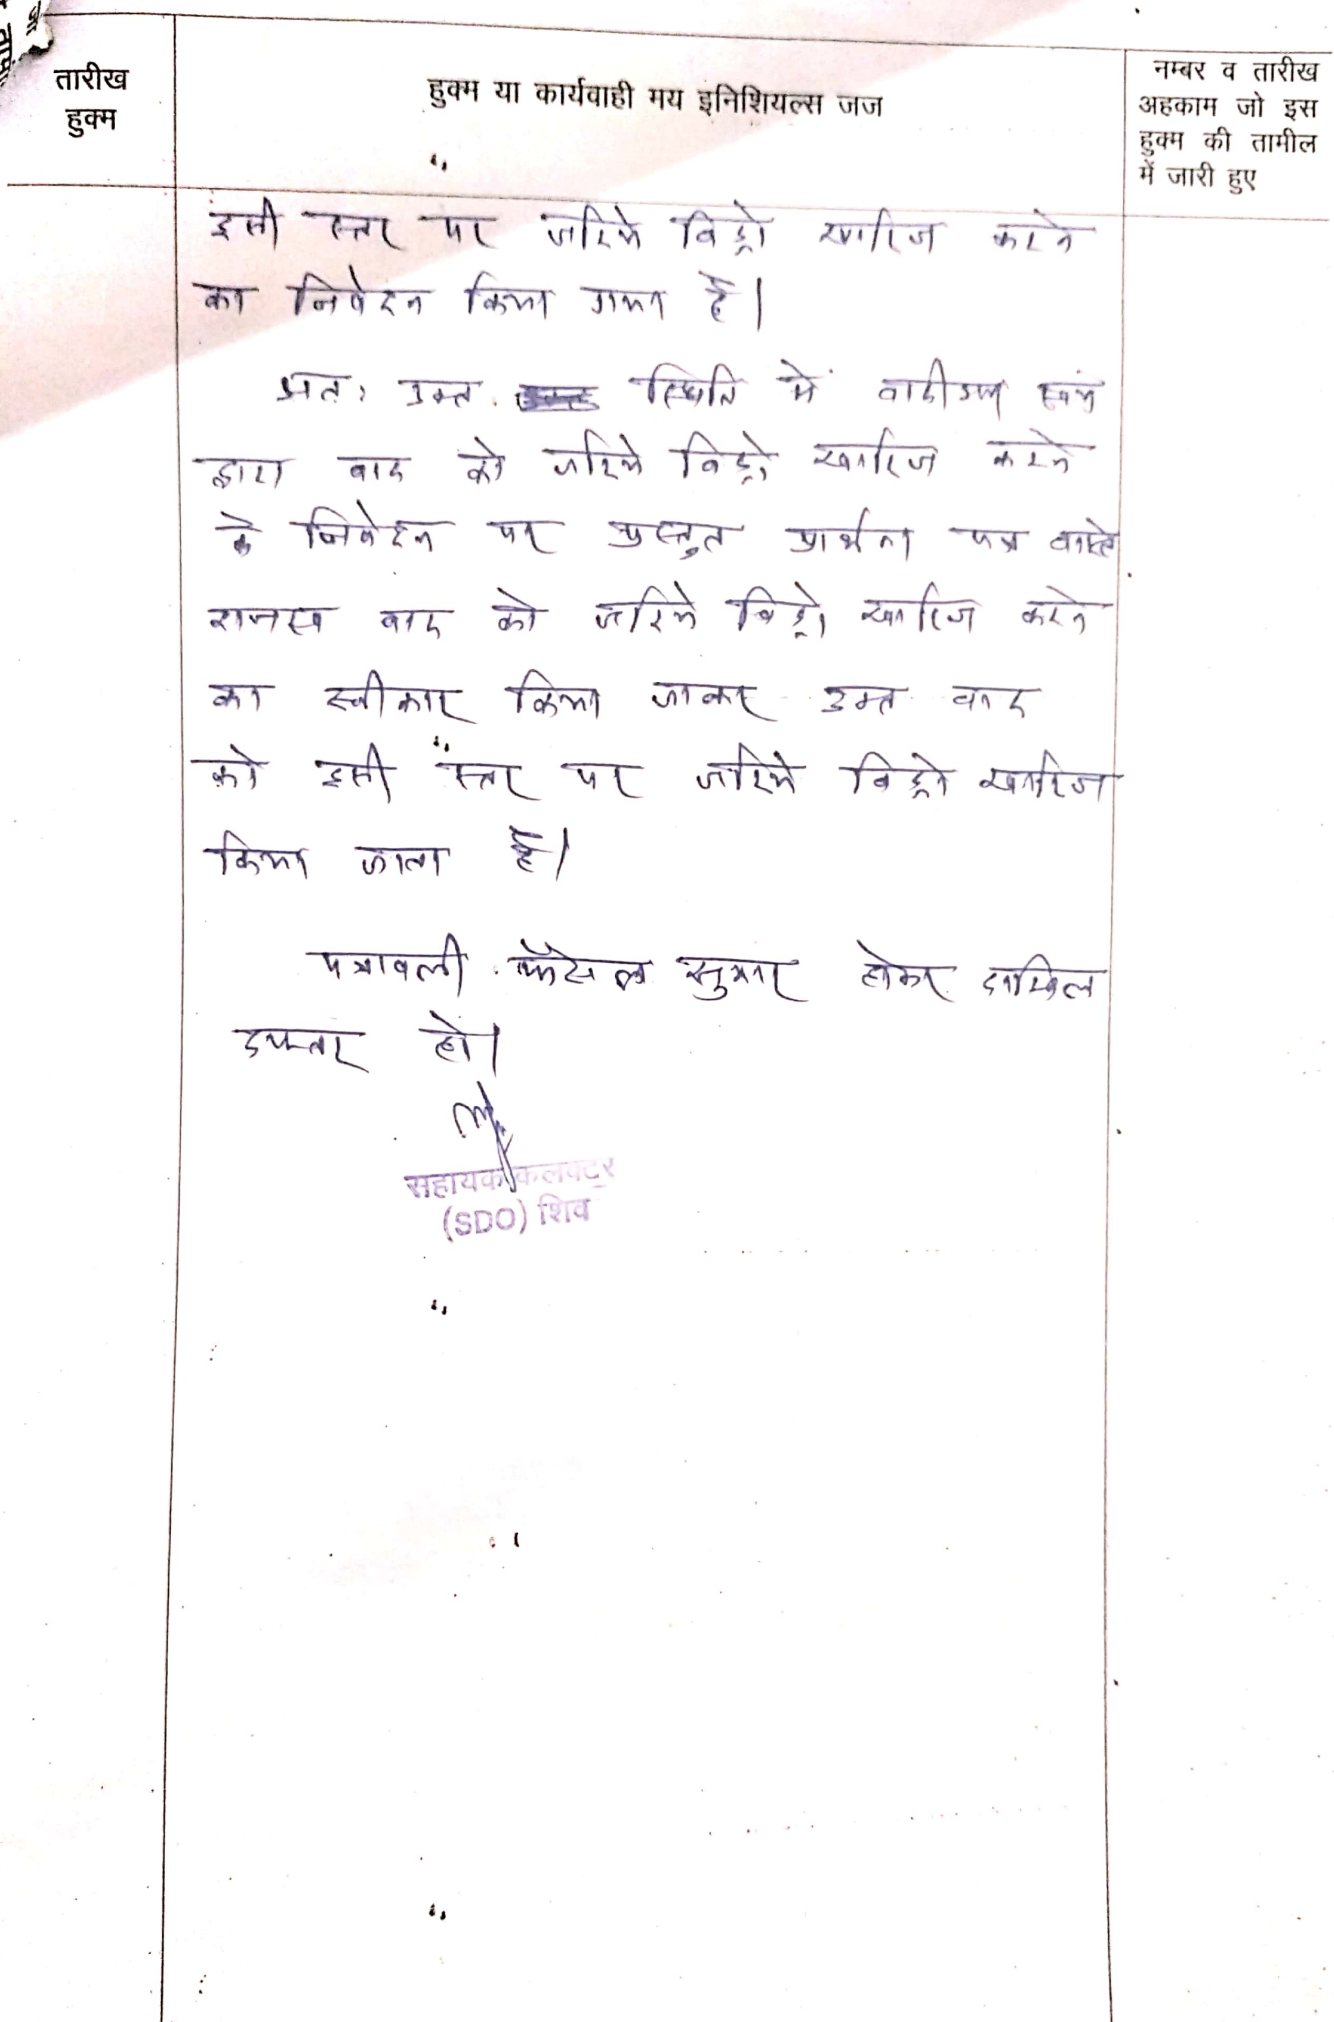 तारीख
हुक्म
हुक्म या कार्यवाही मय इनिशियल्स जज
नम्बर व तारीख
अहकाम जो इस
हुक्म की तामील
में जारी हुए
इसी स्तर पर जरिये विड्रो खारिज करने
का निवेदन किया गया है।
अतः उक्त स्थिति में वादीगण स्वयं
द्वारा वाद को जरिये विड्रो खारिज करने
के निवेदन पर प्रस्तुत प्रार्थना पत्र वास्ते
राजस्व वाद को जरिये विड्रो खारिज करने
का स्वीकार किया जाकर उक्त वाद
को इसी स्तर पर जरिये विड्रो खारिज
किया जाता है।
पत्रावली फैसल सुमार होकर दाखिल
दफ्तर हो।
सहायक कलक्टर
(SDO) शिव